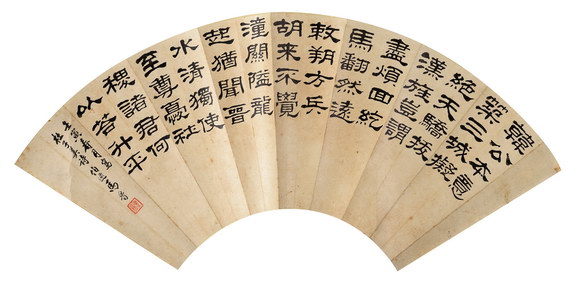 韓公本意
築三城擬
絕天驕拔
漢旌豈謂
盡煩回紇
馬翻然遠
救朔方兵
胡来不覺
潼關隘龍
起猶聞晉
水清獨使
至尊憂社
稷諸君何
以答升平
杜子美詩